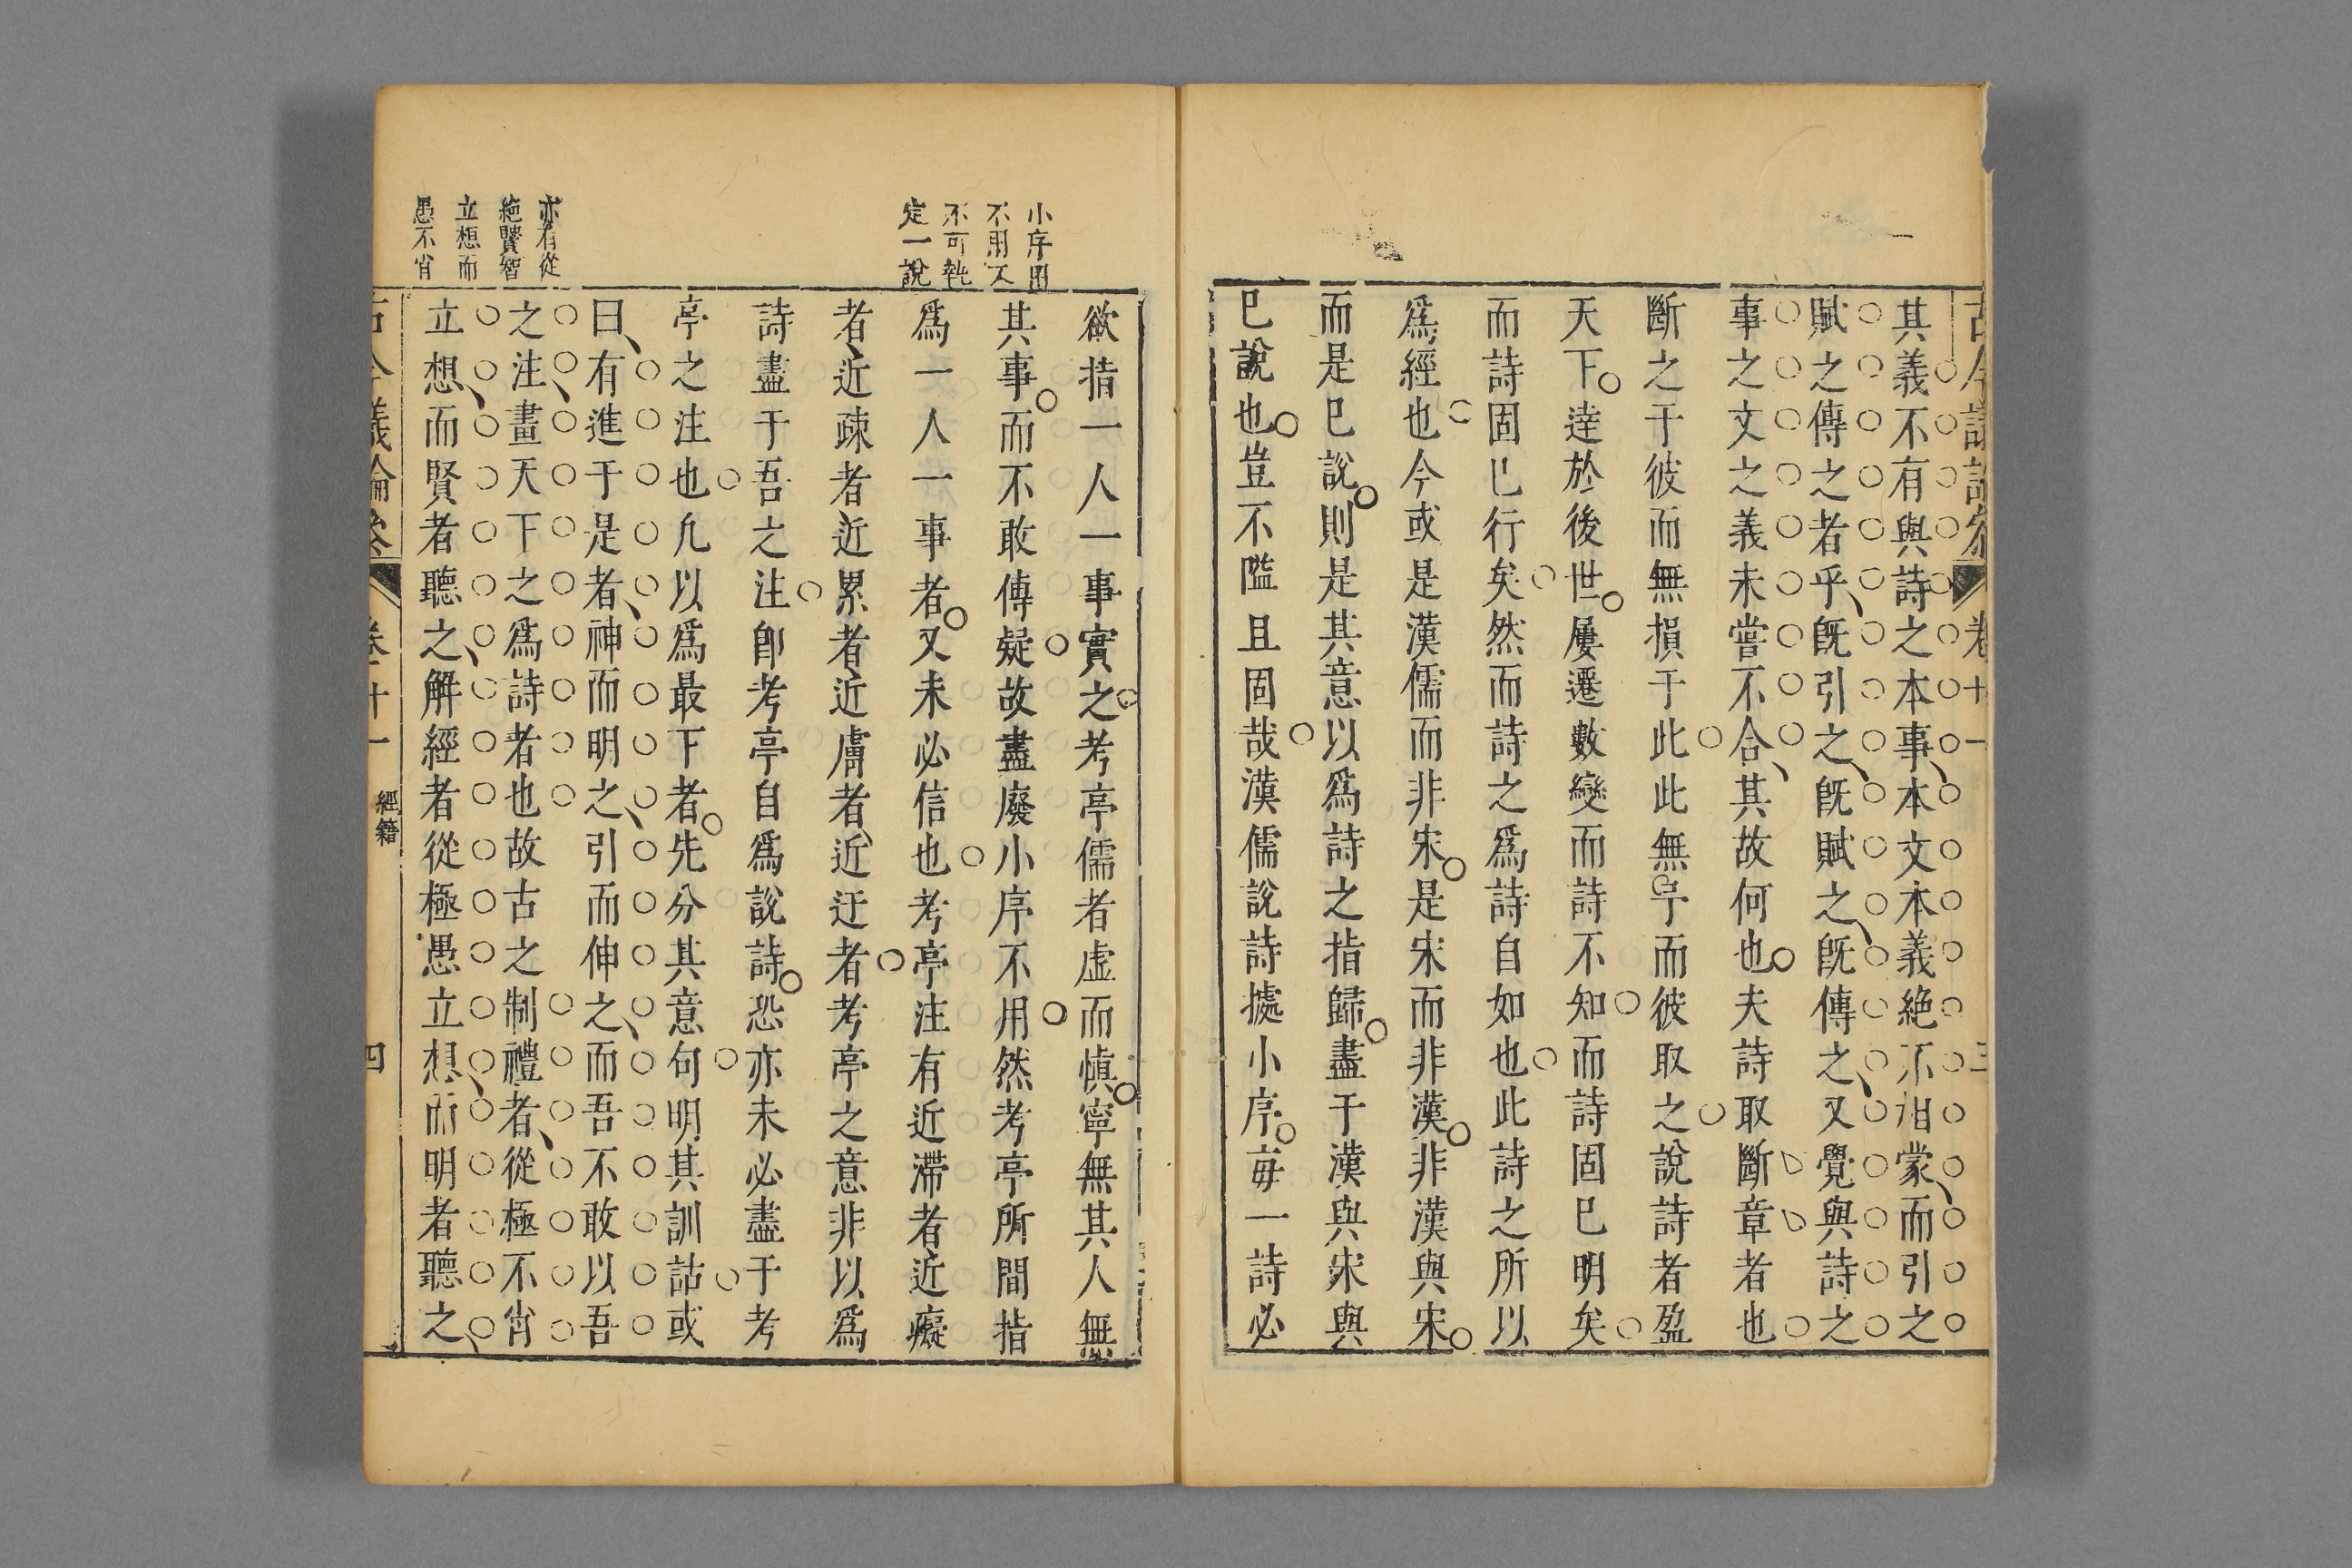 其義不有與詩之本事本文本義絶不相蒙而引之
賦之傳之者乎旣引之旣賦之旣傳之又覺與詩之
事之文之義未嘗不合其故何也夫詩取斷章者也
斷之于彼而無損于此此無予而彼取之說詩者盈
天下逹於後世屢遷數變而詩不知而詩固已明矣
而詩固已行矣然而詩之爲詩自如也此詩之所以
爲經也今或是漢儒而非宋是宋而非漢非漢與宋
而是已說則是其意以爲詩之指歸盡于漢與宋與
已說也豈不隘且固哉漢儒說詩據小序每一詩必
小序用
不用又
不可執
定一說
欲指一人一事實之考亭儒者虛而愼寧無其人無
其事而不敢傳疑故盡廢小序不用然考亭所間指
爲一人一事者又未必信也考亭注有近滯者近癡
者近疎者近累者近膚者近迂者考亭之意非以爲
詩盡于吾之注卽考亭自爲說詩恐亦未必盡于考
亭之注也凡以爲最下者先分其意句明其訓詁或
曰有進于是者神而明之引而伸之而吾不敢以吾
之注畫天下之爲詩者也故古之制禮者從極不肖
立想而賢者聽之解經者從極愚立想而明者聽之
亦有從
絶賢智
立想而
愚不肖
卷十一
經籍
四